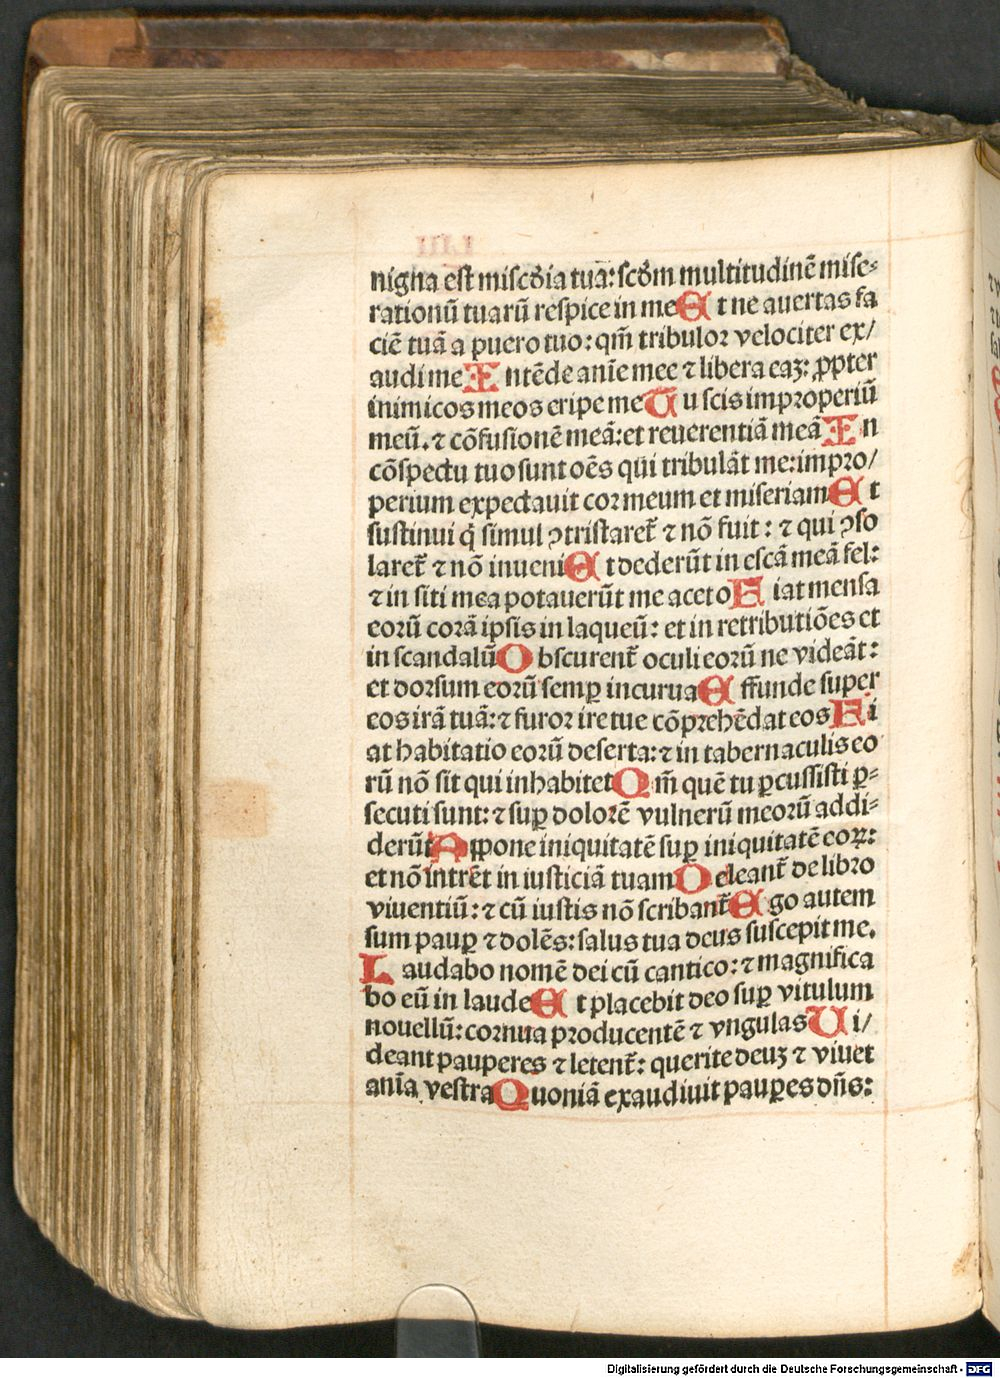 LIII
nigna est misc̄dia tua: scd̄m multitudinē mise⸗
rationū tuarū respice in me Et ne auertas fa
ciē tuā a puero tuo: qm̄ tribulor velociter ex/
audi me Intēde anīe mee ⁊ libera eaꝫ: ꝓpter
inimicos meos eripe me Tu scis improperiū
meū. ⁊ cōfusionē meā: et reuerentiā meā In
cōspectu tuo sunt oēs qui tribulāt me: impro/
perium expectauit cor meum et miseriam Et
sustinui q̄ simul ꝯtristaret̄ ⁊ nō fuit: ⁊ qui ꝯso
laret̄ ⁊ nō inueni Et dederūt in escā meā fel:
⁊ in siti mea potauerūt me aceto Fiat mensa
eorū corā ipsis in laqueū: et in retributiōes et
in scandalū Obscurent̄ oculi eorū ne videāt:
et dorsum eorū semꝑ incurua Effunde super
eos irā tuā: ⁊ furor ire tue cōprehēdat eos Fi
at habitatio eorū deserta: ⁊ in tabernaculis eo
rū nō sit qui inhabitet Qm̄ quē tu ꝑcussisti ꝑ⸗
secuti sunt: ⁊ suꝑ dolorē vulnerū meorū addi⸗
derūt Appone iniquitatē suꝑ iniquitatē eoꝝ:
et nō intrēt in iusticiā tuam Deleant̄ de libro
viuentiū: ⁊ cū iustis nō scribant̄ Ego autem
sum pauꝑ ⁊ dolēs: salus tua deus suscepit me.
Laudabo nomē dei cū cantico: ⁊ magnifica
bo eū in laude Et placebit deo suꝑ vitulum
nouellū: cornua producentē ⁊ vngulas Vi/
deant pauperes ⁊ letent̄: querite deuꝫ ⁊ viuet
anīa vestra Quoniā exaudiuit pauꝑes dn̄s:
Digitalisierung gefördert durch die Deutsche Forschungsgemeinschaft - DFG